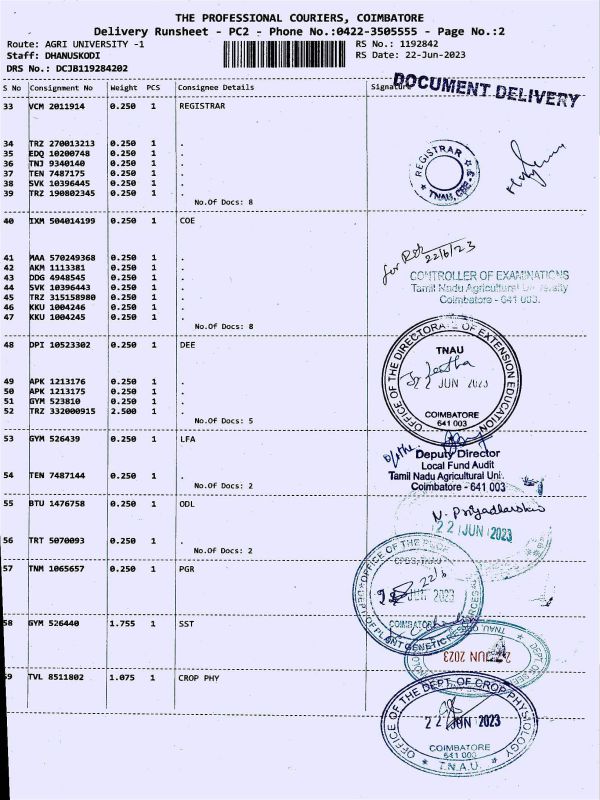 THE PROFESSIONAL COURIERS, COIMBATORE
Delivery Runsheet - PC2 - Phone No.:0422-3505555 - Page No.:2
Route: AGRI UNIVERSITY -1 RS No.: 1192842
Staff: DHANUSKODI RS Date: 22-Jun-2023
DRS No.: DCJB119284202
S No Consignment No Weight PCS Consignee Details Signature
DOCUMENT DELIVERY
33 VCM 2011914 0.250 1 REGISTRAR
34 TRZ 270013213 0.250 1 .
35 EDQ 10200748 0.250 1 .
36 TNJ 9340140 0.250 1 .
37 TEN 7487175 0.250 1 .
38 SVK 10396445 0.250 1 .
39 TRZ 190802345 0.250 1 .
No.Of Docs: 8
REGISTRAR
TNAU, CBE-3
40 IXM 504014199 0.250 1 COE
41 MAA 570249368 0.250 1 .
42 AKM 1113381 0.250 1 .
43 DDG 4948545 0.250 1 .
44 SVK 10396443 0.250 1 .
45 TRZ 315158980 0.250 1 .
46 KKU 1004246 0.250 1 .
47 KKU 1004245 0.250 1 .
No.Of Docs: 8
for
22/6/23
CONTROLLER OF EXAMINATIONS
Tamil Nadu Agricultural University
Coimbatore - 641 003.
48 DPI 10523302 0.250 1 DEE
49 APK 1213176 0.250 1 .
50 APK 1213175 0.250 1 .
51 GYM 523810 0.250 1 .
52 TRZ 332000915 2.500 1 .
No.Of Docs: 5
OFFICE OF THE DIRECTORATE OF EXTENSION EDUCATION
TNAU
22 JUN 2023
COIMBATORE
641 003
53 GYM 526439 0.250 1 LFA
54 TEN 7487144 0.250 1 .
No.Of Docs: 2
Deputy Director
Local Fund Audit
Tamil Nadu Agricultural Uni.
Coimbatore - 641 003
55 BTU 1476758 0.250 1 ODL
56 TRT 5070093 0.250 1 .
No.Of Docs: 2
N. Priyadharshini
22 JUN 2023
57 TNM 1065657 0.250 1 PGR
OFFICE OF THE
DEPT. OF PLANT GENETIC RESOURCES
CPBG, TNAU
22/6
JUN 2023
COIMBATORE
58 GYM 526440 1.755 1 SST
TNAU
22 JUN 2023
DEPT. OF
59 TVL 8511802 1.075 1 CROP PHY
OFFICE OF THE DEPT. OF CROP PHYSIOLOGY
22 JUN 2023
COIMBATORE
641 003
T.N.A.U.